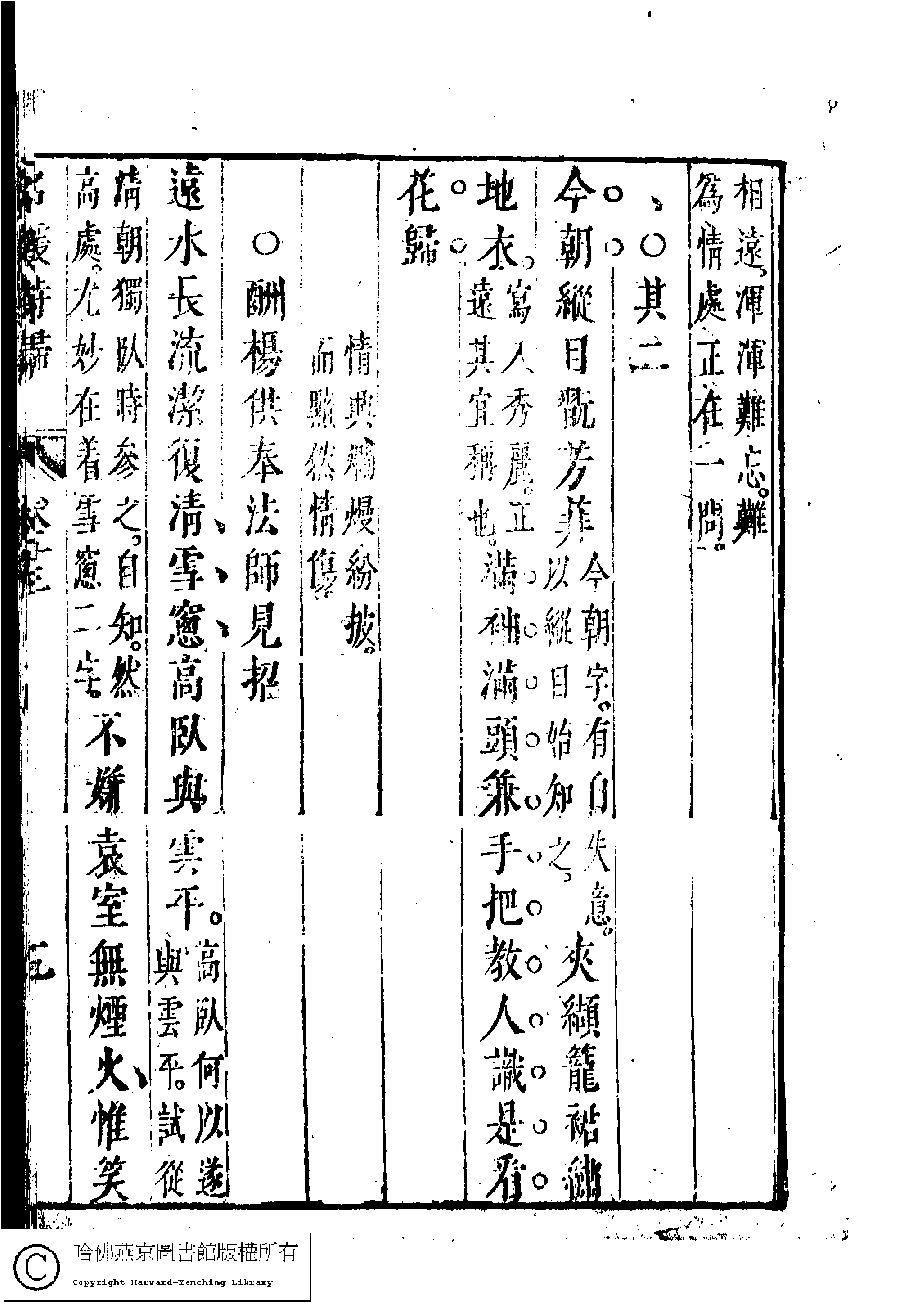 相遠。渾渾難忘。難
為情處正在一問。
、○其二
今朝縱目翫芳菲今朝字。有自失意。
以縱目始知之。夾纈籠裙繡
地衣。寫人秀麗。正
遠其宜稱也。滿袖滿頭兼手把教人識是看
花歸
情興爛熳紛披。
而黯然情傷。
○酬楊供奉法師見招
遠水長流潔復清雪窻高臥與雲平。高臥何以遂
與雲平。試從
清朝獨臥時參之。自知。然
高處。尤妙在着雪窻二字。不嫌袁室無煙火惟笑
名媛詩歸
五
哈佛燕京圖書館版權所有
Copyright Harvard-Yenching Library